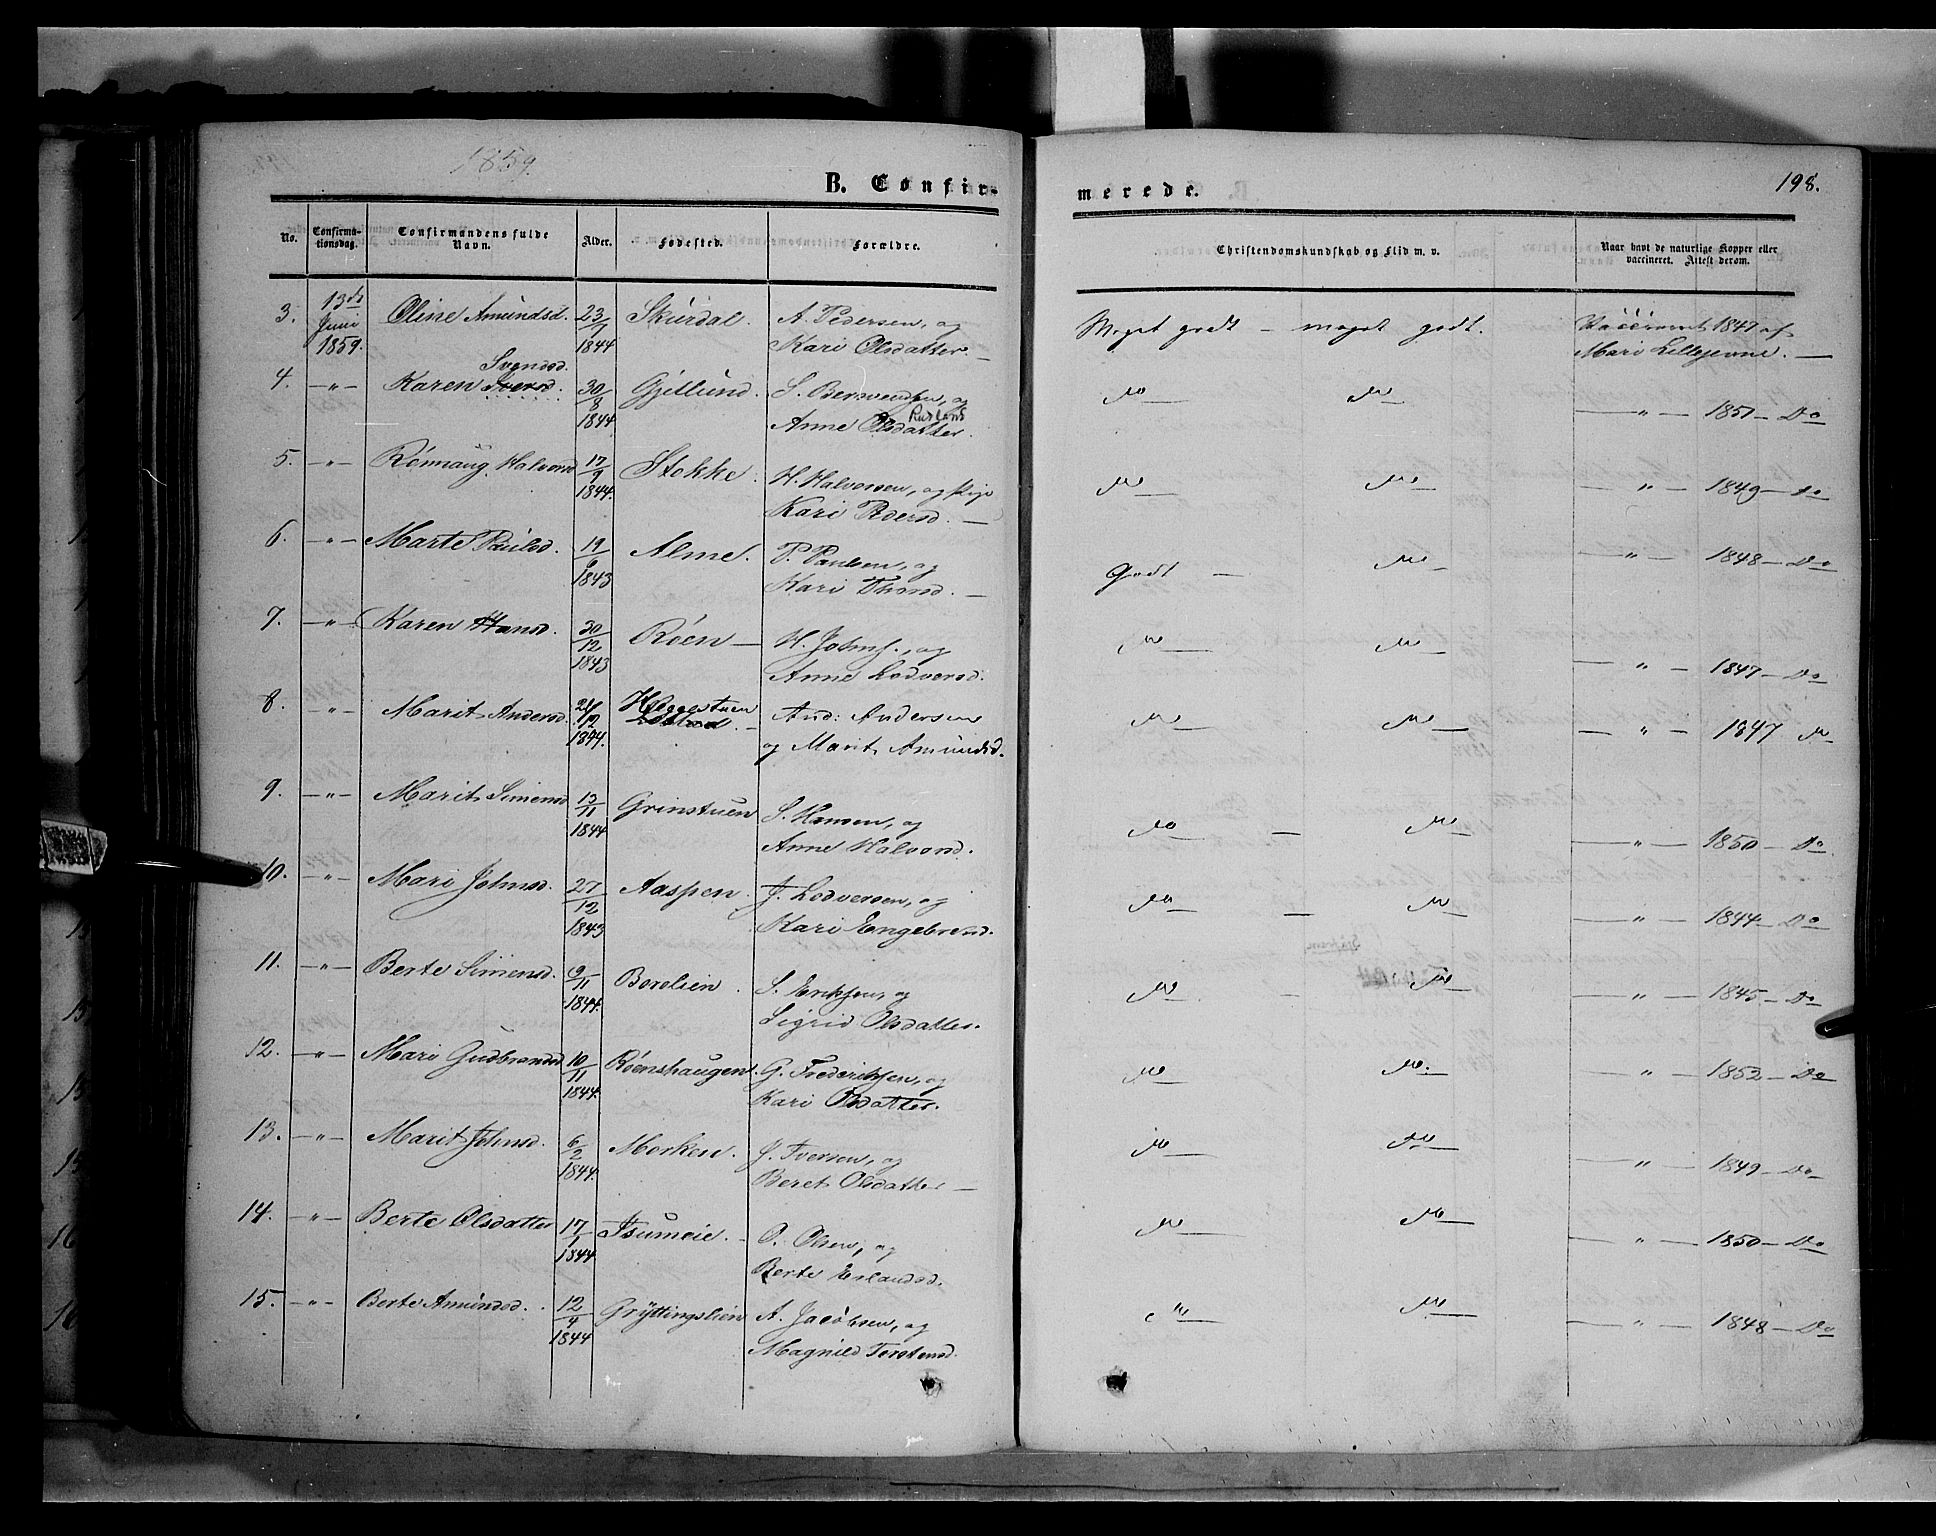 1859.
198.
B. Confir-
merede.
No.
Confirma-
tionsdag.
Confirmandens fulde
Navn.
Alder.
Fødested.
Forældre.
Christendomskundskab og Flid m. v.
Naar havt de naturlige Kopper eller
vaccineret. Attest derom.
3. 13de Oline Amundsd. 23/7 Skurdal. A. Pedersen, og Meget godt – meget godt. 1847 af
Juni 1844 Kari Olsdatter. — Mari Lillejevne. —
1859.
Svendsd.
4. —〃— Karen 30/8 Gjetlund. S. og Do Do —〃— 1851 — Do
1844 Anne Olsdatter.
5. —〃— Rønnaug Halvorsd 17/9 Stokke. H. Halvorsen, og Do Do —〃— 1849 — Do
1844. Kari Pedersd. —
6. —〃— Marte Paulsd. 19/ Alme. P. Paulsen, og Godt — Do —〃— 1848 — Do
1843 Kari —
7. —〃— Karen Hansd. 30/12 Røen — H. Johns., og Do Do —〃— 1847 — Do
1843 Anne Lodversd.
8. —〃— Marit Andersd. /12 Heggestuen And: Andersen Do Do —〃— 1847 Do
1844. og Marit Amundsd.
9. —〃— Marit Simensd 13/11 Grinstuen S. Hansen, og Do — Do —〃— 1850 — Do
1844 Anne Halvorsd.
10. —〃— Mari Johnsd. 27/12 Aaspen. J. Lodversen, og Do — Do —〃— 1844 — Do
1843 Kari Engebretsd.
11. —〃— Berte Simensd. 9/11 Borelien. S. Eriksen, og Do — Do —〃— 1845 — Do
1844. Sigrid Olsdatter.
12. —〃— Mari Gudbrandsd 10/11 Røenshaugen. G. Frederiksen, og Do Do. —〃— 1852 — Do
1844. Kari Olsdatter.
13. —〃— Marit Johnsd. 6/2 Morken. J. Iversen, og Do Do —〃— 1849 — Do
1844. Beret Olsdatter —
14. —〃— Berte Olsdatter 17/1 Isumeie. — O. Olsen, og Do Do —〃— 1850 — Do
1844 Berte Erlandsd.
15. —〃— Berte Amundsd. 12/4 Gryttingslien A. Jacobsen, og Do Do —〃— 1848 — Do
1844 Magnild Torstensd.